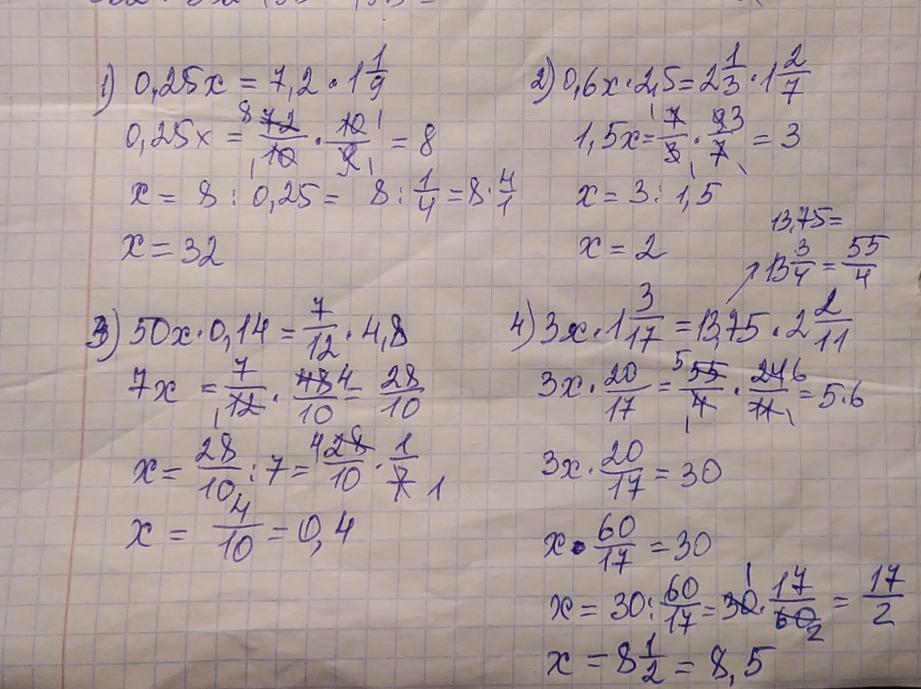 1) 0,25x = 7,2 · 1 1/9
0,25x = 72/10 · 10/9 = 8
x = 8 : 0,25 = 8 : 1/4 = 8 · 4/1
x = 32
2) 0,6x · 2,5 = 2 1/3 · 1 2/7
1,5x = 7/3 · 9/7 = 3
x = 3 : 1,5
x = 2
3) 50x · 0,14 = 7/12 · 4,8
7x = 7/12 · 48/10 = 28/10
x = 28/10 : 7 = 28/10 · 1/7
x = 4/10 = 0,4
13,75 =
13 3/4 = 55/4
4) 3x · 1 3/17 = 13,75 · 2 2/11
3x · 20/17 = 55/4 · 24/11 = 5 · 6
3x · 20/17 = 30
x · 60/17 = 30
x = 30 : 60/17 = 30 · 17/60 = 17/2
x = 8 1/2 = 8,5